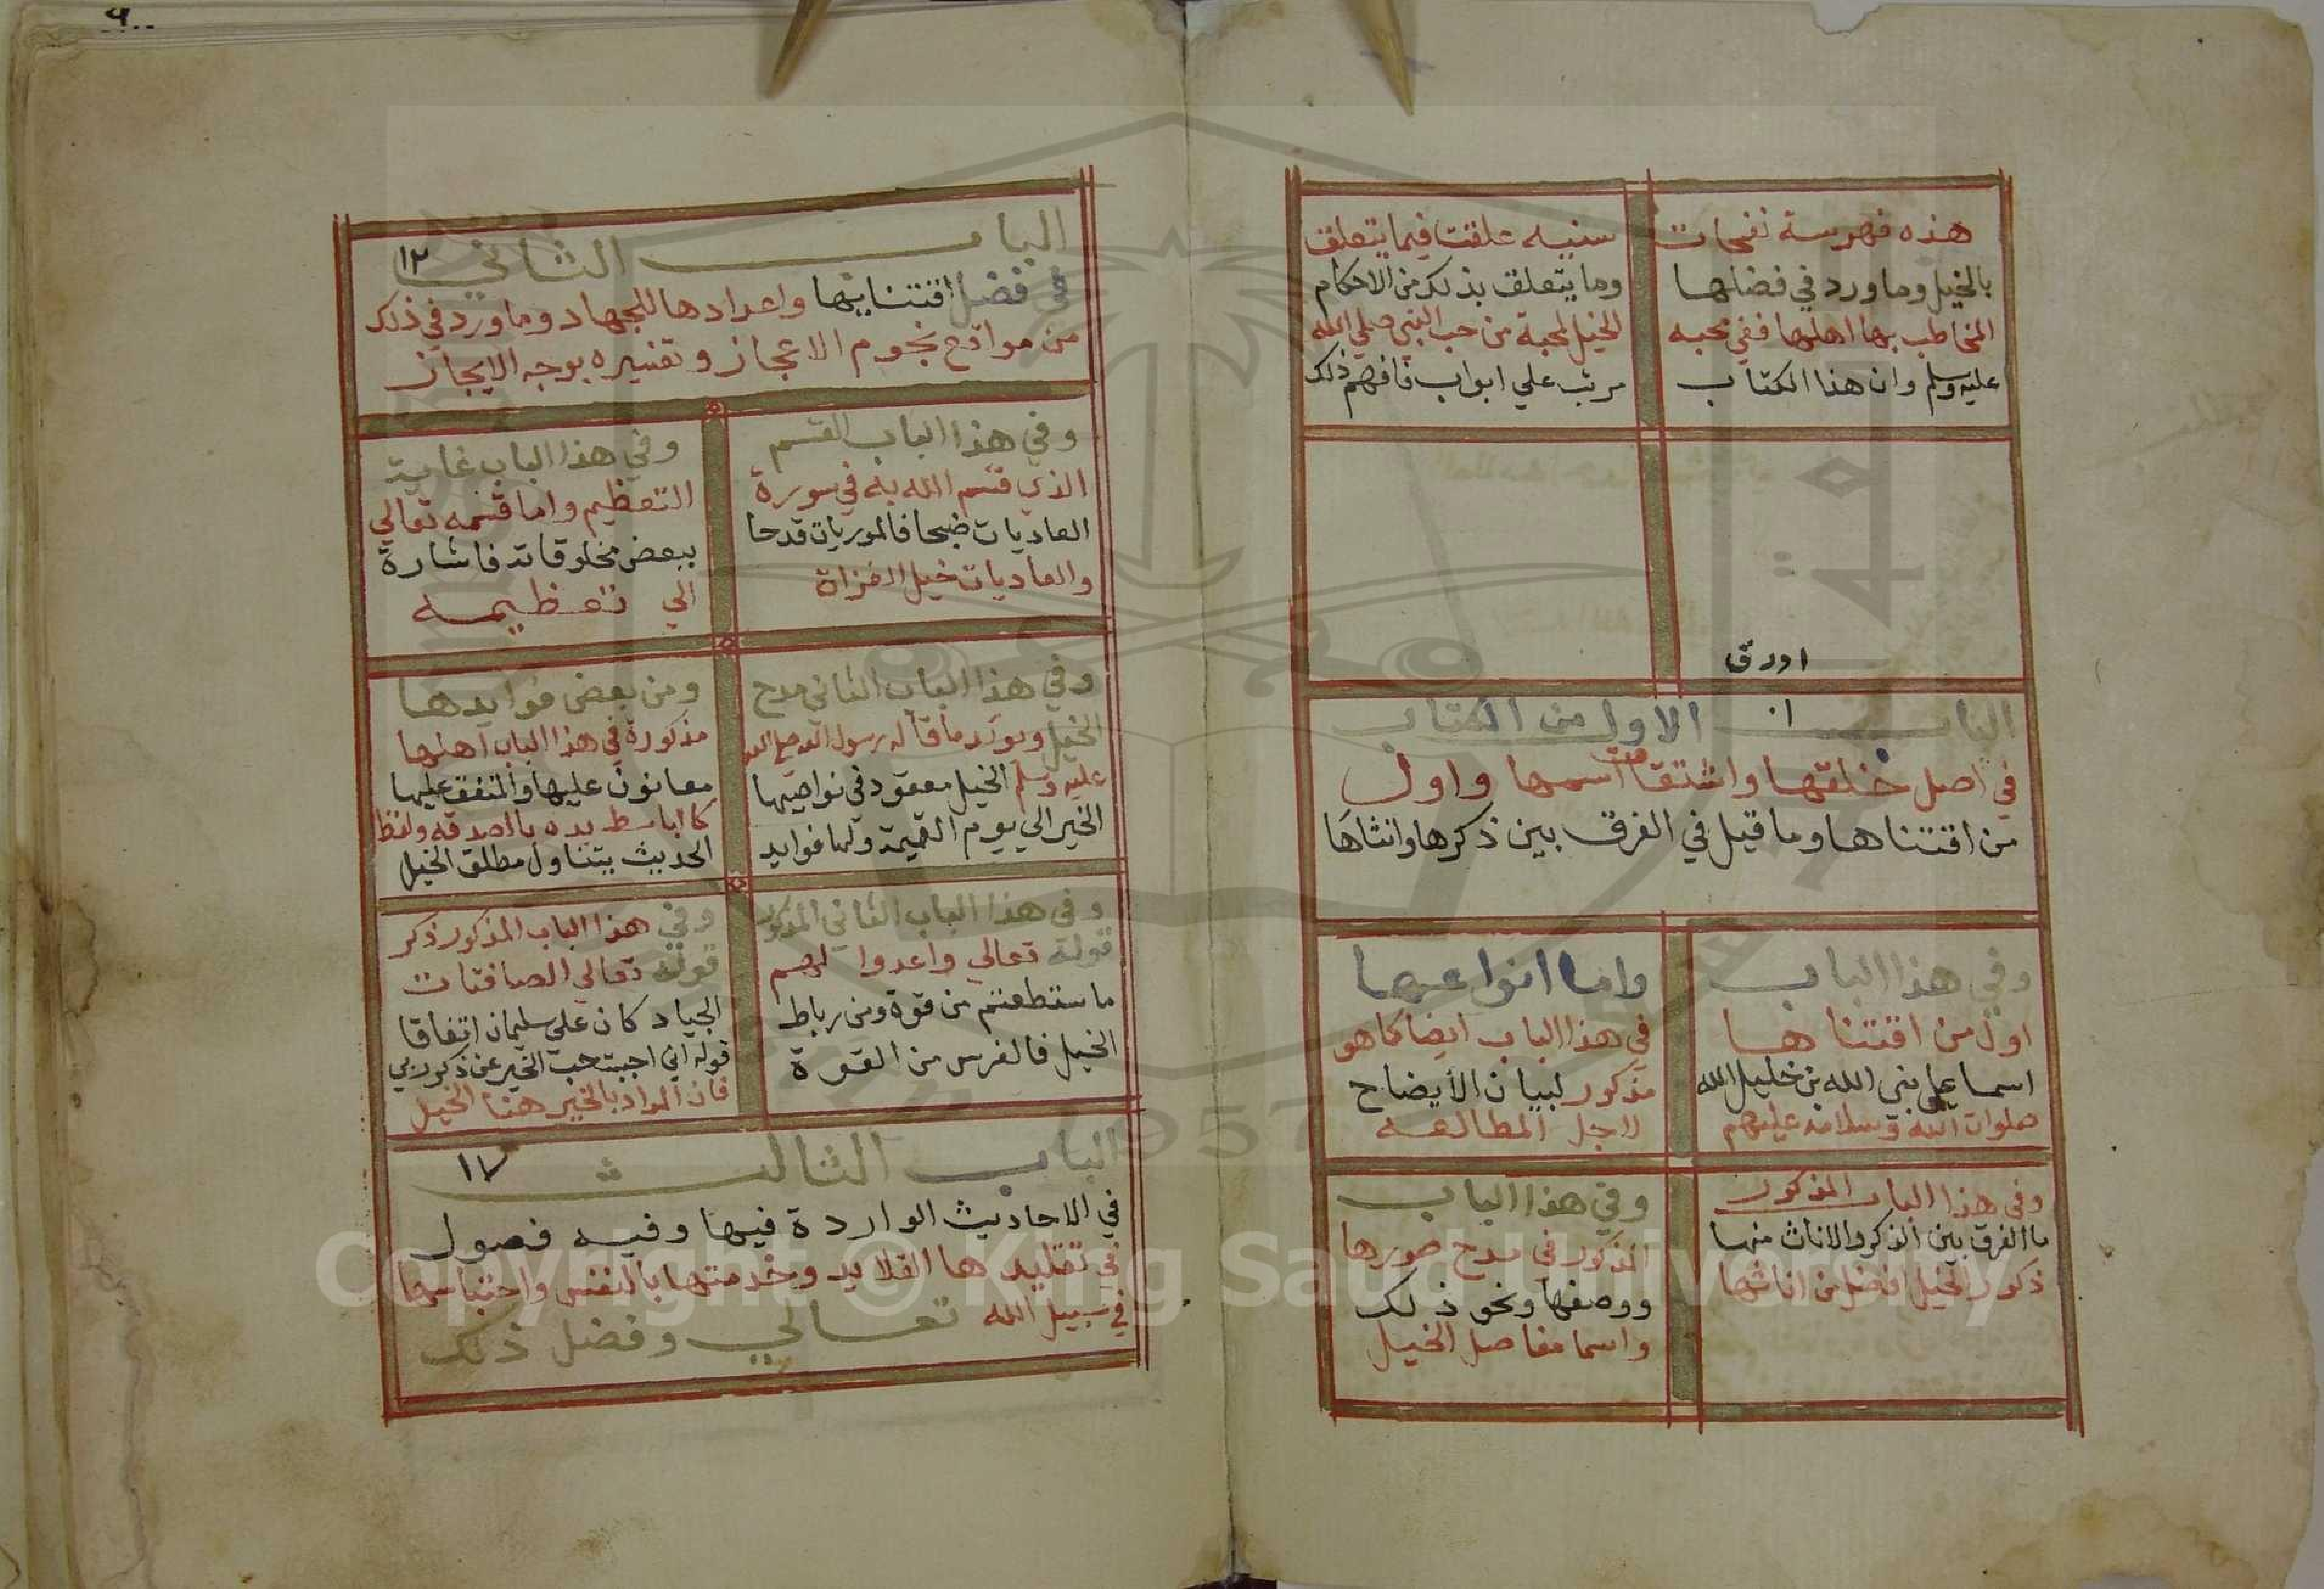 هذه فهرسة نفحات سنيه علقت فيما يتعلق
بالخيل وما ورد في فضلها وما يتعلق بذلك من الاحكام
المخاطب بها اهلها ففي محبه الخيل لمحبة من حب النبي صلي الله
عليه وسلم وان هذا الكتاب مرتب علي ابواب فافهم ذلك
اورق
الباب الاول من الكتاب ١٠
في اصل خلقتها واشتقاق اسمها واول
من اقتناها وما قيل في الفرق بين ذكرها وانثاها
وفي هذا الباب
اول من اقتناها
اسماعيل نبي الله بن خليل الله
صلوات الله وسلامه عليهم
واما انواعها
في هذا الباب ايضا كما هو
مذكور لبيان الأيضاح
لاجل المطالعه
وفي هذا الباب المذكور
ما الفرق بين الذكر والاناث منها
ذكور الخيل افضل من اناثها
وفي هذا الباب
المذكور في مدح صورها
ووصفها ونحو ذلك
واسما مفاصل الخيل
٩٠٠
الباب الثاني ١٢
في فضل اقتنايها واعدادها للجهاد وما ورد في ذلك
من مواقع نجوم الاعجاز وتفسيره بوجه الايجاز
وفي هذا الباب القسم
الذي قسم الله به في سورة
العاديات ضبحا فالموريات قدحا
والعاديات خيل الغزاة
وفي هذا الباب غاية
التعظيم واما قسمه تعالي
ببعض مخلوقاته فاشارة
الي تعظيمه
وفي هذا الباب الثاني مدح
الخيل ويورد ما قاله رسول الله صلي الله
عليه وسلم الخيل معقود في نواصيها
الخير الي يوم القيمة ولها فوايد
ومن بعض فوايدها
مذكورة في هذا الباب اهلها
معانون عليها والمنفق عليها
كالباسط يده بالصدقه ولفظ
الحديث يتناول مطلق الخيل
وفي هذا الباب الثاني المذكور
قوله تعالي واعدوا لهم
ماستطعتم من قوة ومن رباط
الخيل فالفرس من القوة
وفي هذا الباب المذكور ذكر
قوله تعالي الصافنات
الجياد كان علي سليمان اتفاقا
قوله اني احببت حب الخير عن ذكر ربي
فان المراد بالخير هنا الخيل
الباب الثالث ١٧
في الاحاديث الواردة فيها وفيه فصول
في تقليدها القلايد وخدمتها بالنفس واحتباسها
في سبيل الله تعالي وفضل ذلك
Copyright © King Saud University
1957